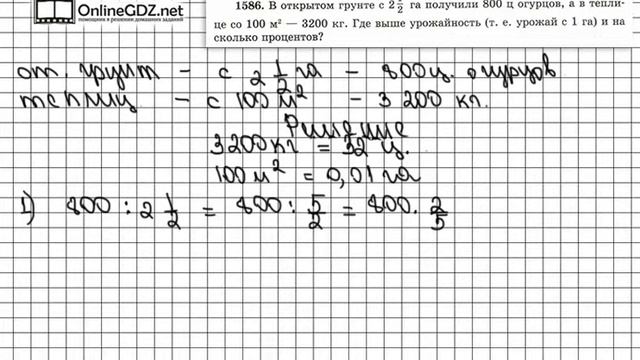 OnlineGDZ.net
помощник в решении домашних заданий
1586. В открытом грунте с 2 1/2 га получили 800 ц огурцов, а в тепли-
це со 100 м² — 3200 кг. Где выше урожайность (т. е. урожай с 1 га) и на
сколько процентов?
от. грунт - с 2 1/2 га - 800 ц. огурцов
теплиц - с 100 м² - 3 200 кг.
Решение
3200 кг = 32 ц.
100 м² = 0,01 га
1) 800 : 2 1/2 = 800 : 5/2 = 800 · 2/5